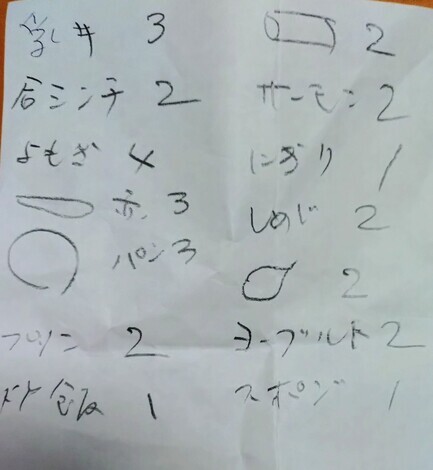 3
ミンチ 2
よもぎ 4
3
パン 3
プリン 2
1
2
サーモン 2
にぎり 1
しめじ 2
2
ヨーグルト 2
スポンジ 1